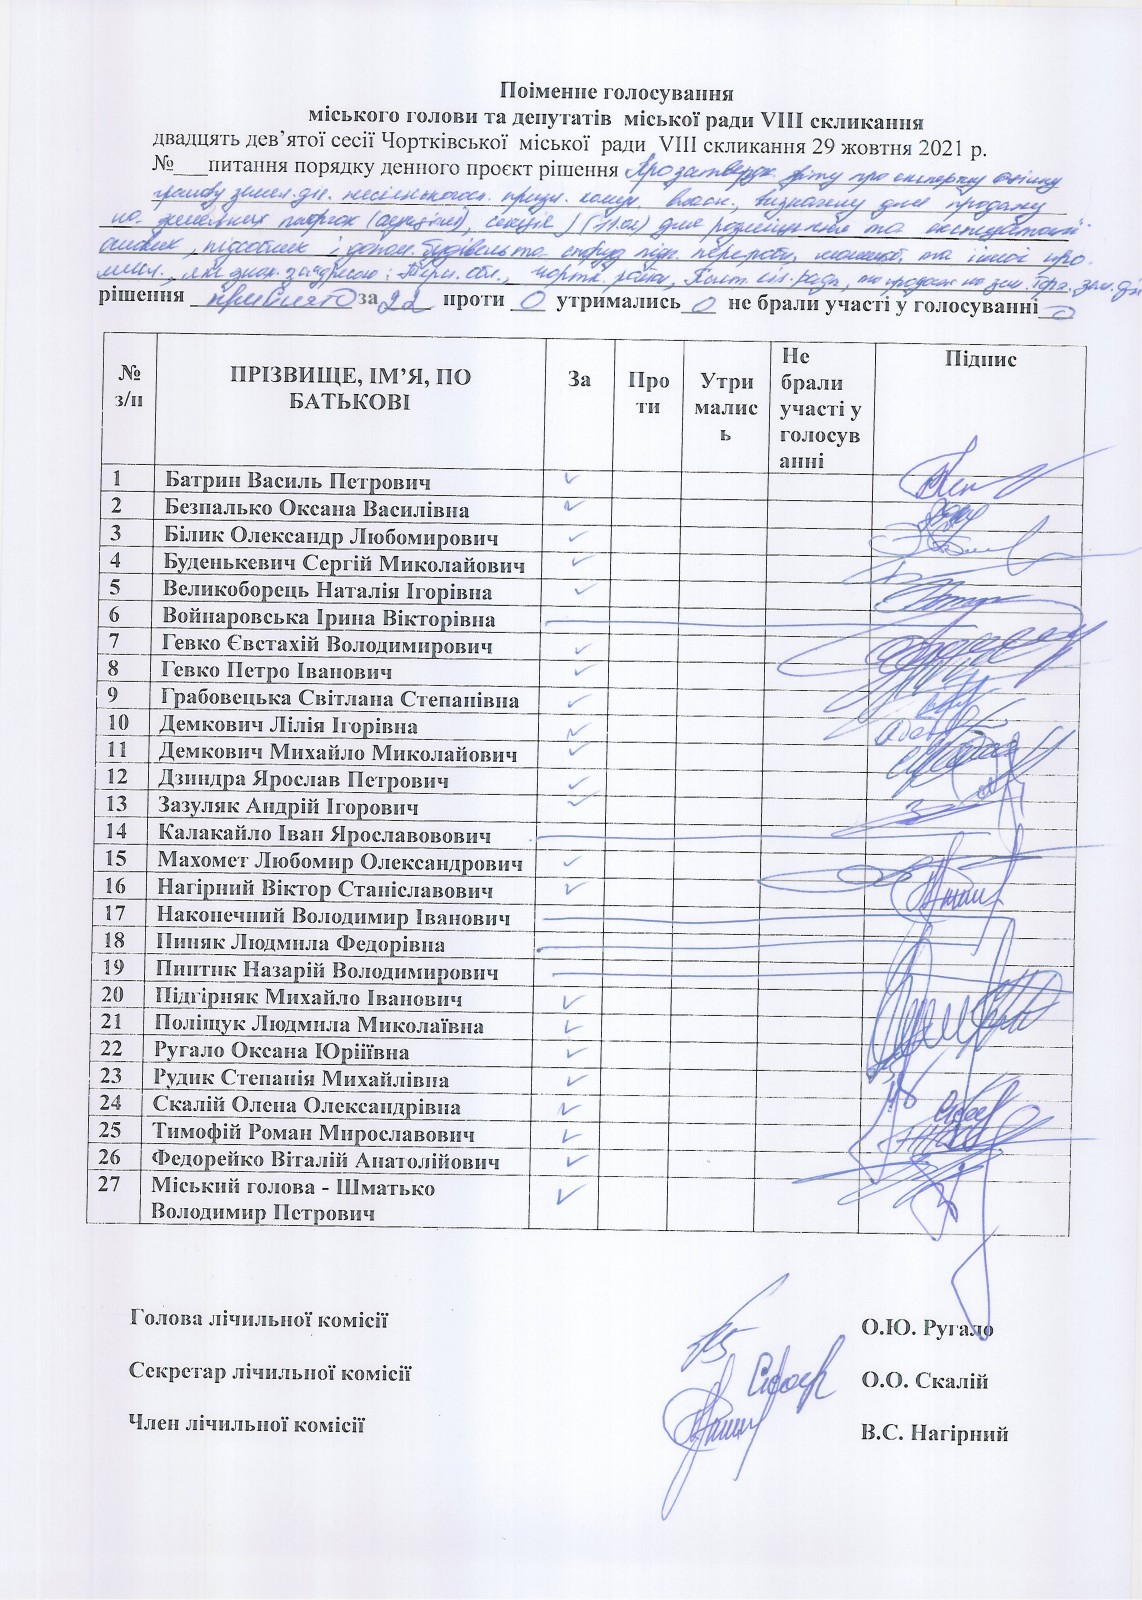 Поіменне голосування
міського голови та депутатів міської ради VIII скликання
двадцять дев’ятої сесії Чортківської міської ради VIII скликання 29 жовтня 2021 р.
№___питання порядку денного проєкт рішення Про затвердж. звіту про експертну оцінку
земел. діл. несільськогосп. призн. комун. власн., визначену для продажу
на земельних торгах (аукціоні), секція J (11.02) для розміщення та експлуатації
основних, підсобних і допом. будівель та споруд підп. переробн., машиноб. та іншої про-
мисл., яка знах. за адресою: Терн. обл., Чортк. район,
рішення прийнято за 22 проти 0 утримались 0 не брали участі у голосуванні 0
№ з/п ПРІЗВИЩЕ, ІМ’Я, ПО БАТЬКОВІ За Про ти Утри малис ь Не брали участі у голосув анні Підпис
1 Батрин Василь Петрович ✓
2 Безпалько Оксана Василівна ✓
3 Білик Олександр Любомирович ✓
4 Буденькевич Сергій Миколайович ✓
5 Великоборець Наталія Ігорівна ✓
6 Войнаровська Ірина Вікторівна
7 Гевко Євстахій Володимирович ✓
8 Гевко Петро Іванович ✓
9 Грабовецька Світлана Степанівна ✓
10 Демкович Лілія Ігорівна ✓
11 Демкович Михайло Миколайович ✓
12 Дзиндра Ярослав Петрович ✓
13 Зазуляк Андрій Ігорович ✓
14 Калакайло Іван Ярославовович
15 Махомет Любомир Олександрович ✓
16 Нагірний Віктор Станіславович ✓
17 Наконечний Володимир Іванович
18 Пиняк Людмила Федорівна
19 Пинтик Назарій Володимирович
20 Підгірняк Михайло Іванович ✓
21 Поліщук Людмила Миколаївна ✓
22 Ругало Оксана Юріїївна ✓
23 Рудик Степанія Михайлівна ✓
24 Скалій Олена Олександрівна ✓
25 Тимофій Роман Мирославович ✓
26 Федорейко Віталій Анатолійович ✓
27 Міський голова - Шматько ✓
Володимир Петрович
Голова лічильної комісії О.Ю. Ругало
Секретар лічильної комісії О.О. Скалій
Член лічильної комісії В.С. Нагірний